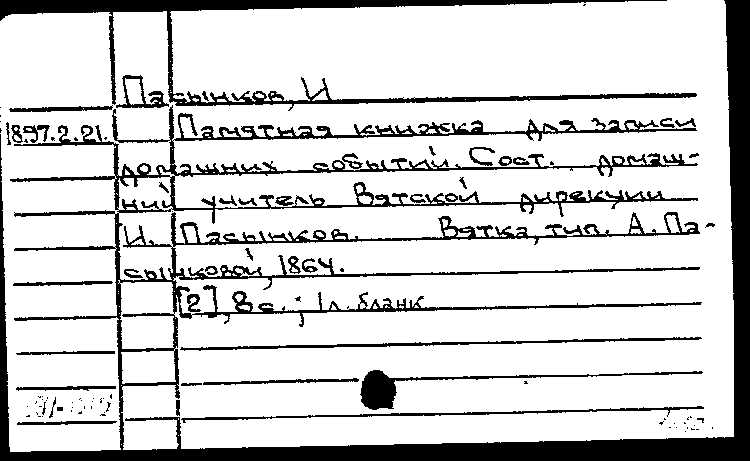 Пасынков, И
18.97.2.21. Памятная книжка для записи
домашних событий. Сост. домаш-
ний учитель Вятской дирекции
И. Пасынков. Вятка, тип. А. Па-
сынковой, 1864.
[2], 8 с.; 1 л. бланк